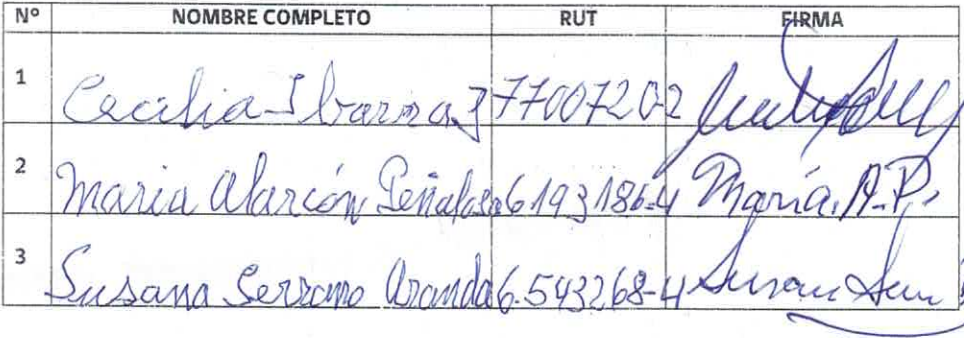 Nº NOMBRE COMPLETO RUT FIRMA
1 Cecilia Ibarra Z 7700720-2
2 Maria Alarcón Peñaloza 6193186-4 María. A.P.
3 Susana Serrano Aranda 6.543268-4